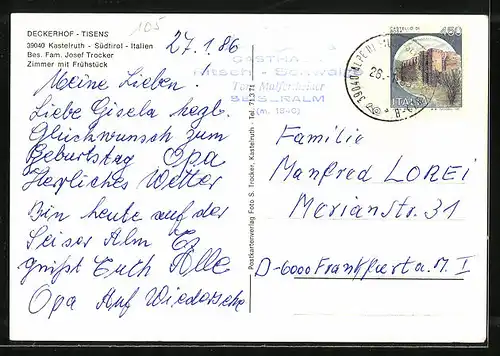 DECKERHOF - TISENS
39040 Kastelruth - Südtirol - Italien
Bes. Fam. Josef Trocker
Zimmer mit Frühstück
105
27.1.86
Meine Lieben.
Liebe Gisela herzl.
Glückwunsch zum
Geburtstag Opa
Herzliches Wetter
Bin heute auf der
Seiser Alm Es
grüßt Euch Alle
Opa Auf Wiedersehn
Postkartenverlag Foto S. Trocker, Kastelruth - Tel. 71371
GASTHAUS
SEISERALM
450
ITALIA
39040 ALPE DI
26.
Familie
Manfred LOREI
Merianstr. 31
D-6000 Frankfurt a. M. I